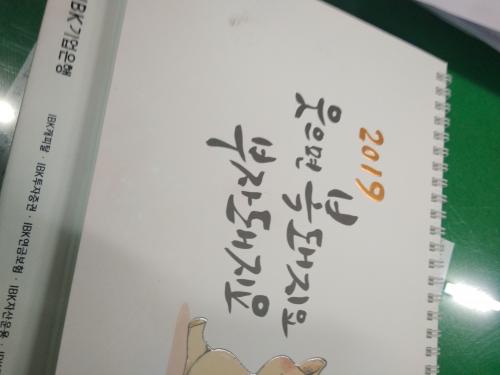 2019
웃으면 복 돼지요
부자 돼지요
IBK기업은행
IBK캐피탈 · IBK투자증권 · IBK연금보험 · IBK자산운용 ·